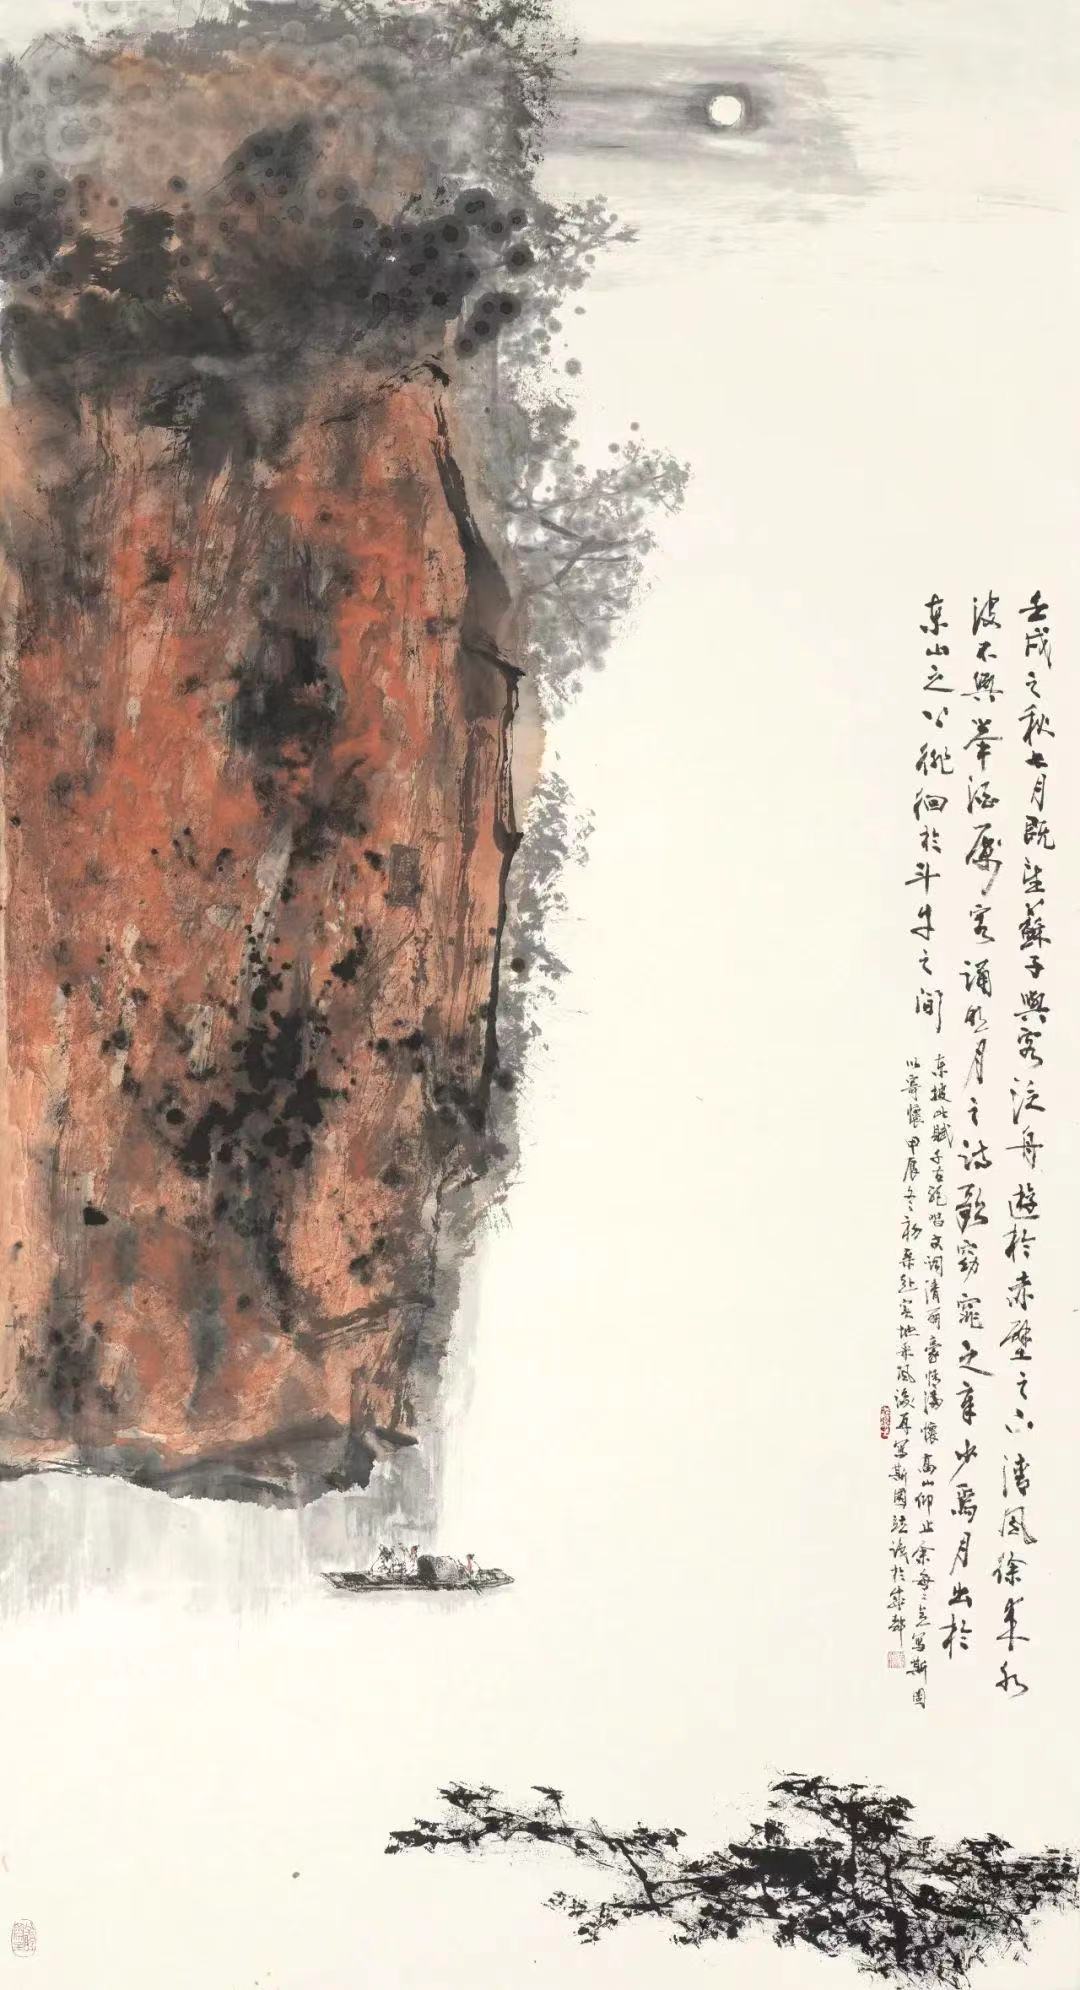 壬戌之秋七月既望蘇子與客泛舟遊於赤壁之下清風徐來水
波不興舉酒屬客誦明月之詩歌窈窕之章少焉月出於
東山之上徘徊於斗牛之間
東坡此賦千古絕唱文詞清丽豪情滿懷高山仰止余每每寫斯圖
以寄懷甲辰冬初余赴实地采風後再寫斯圖識於蓉都